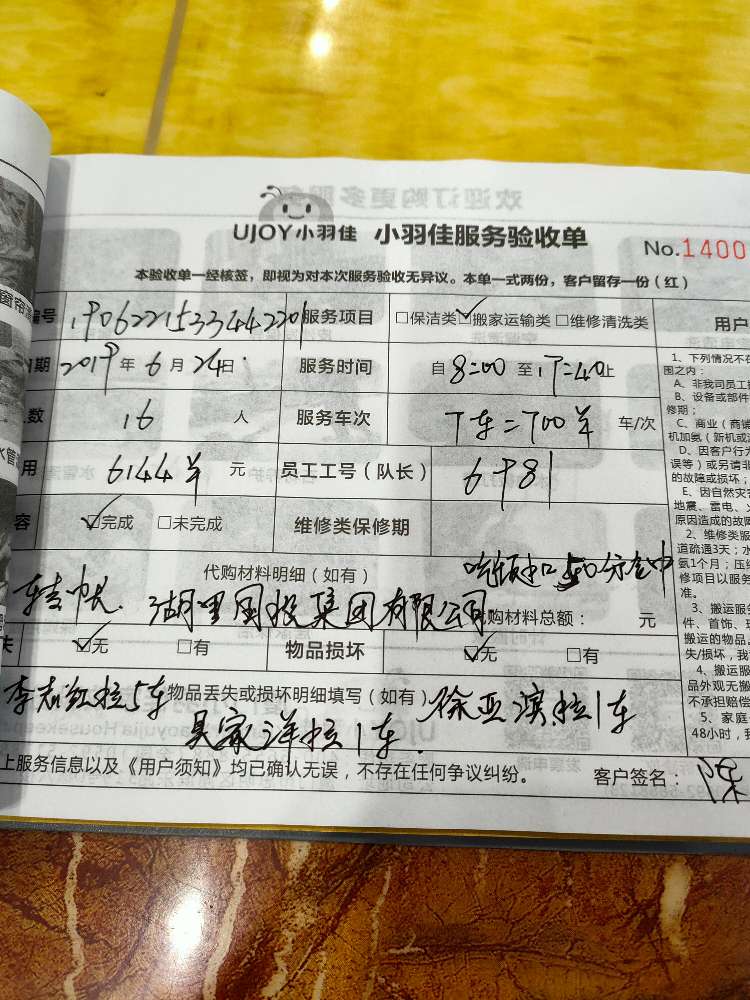 UJOY小羽佳 小羽佳服务验收单
No.1400
本验收单一经核签，即视为对本次服务验收无异议。本单一式两份，客户留存一份（红）
编号 1906221533442201 服务项目 □保洁类 ☑搬家运输类 □维修清洗类
日期 2019年6月24日 服务时间 自8:00至17:40止
人数 16 人 服务车次 7车=700半 车/次
用 6144半 元 员工工号（队长） 6981
容 ☑完成 □未完成 维修类保修期
代购材料明细（如有）
吃饭 50分
转帐 湖里国投集团有限公司 购材料总额： 元
失 ☑无 □有 物品损坏 ☑无 □有
物品丢失或损坏明细填写（如有）
李志红拉5车 徐亚滨拉1车
吴家洋拉1车
上服务信息以及《用户须知》均已确认无误，不存在任何争议纠纷。 客户签名： 陈
用户
1、下列情况不在
围之内：
A、非我司员工
B、设备或部件
修期；
C、商业（商铺
机加氨（新机或
D、因客户行为
误等）或另请非
的故障或损坏；
E、因自然灾害
地震、雷电、
原因造成的故障
2、维修类服
道疏通3天；水
氨1个月；压缩
修项目以服务
准。
3、搬运服务
件、首饰、
搬运的物品。
失/损坏，我
4、搬运服
品外观无搬
不承担赔偿
5、家庭
48小时，我